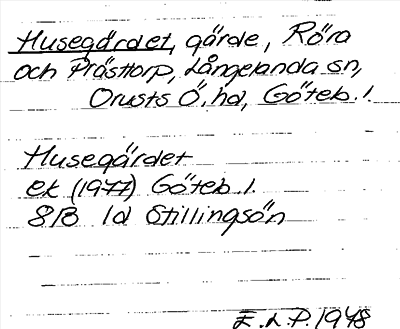 Husegärdet, gärde, Röra
och Prästtorp, Långelanda sn,
Orusts Ö. hd, Göteb. l.
Husegärdet
ek (1977) Göteb. l.
8B 1d Stillingsön
E. L. P. 1948